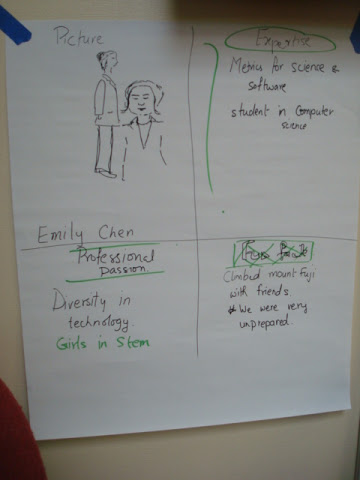 Picture
Emily Chen
Expertise
Metrics for science &
software
student in Computer
science
Professional
passion
Diversity in
technology.
Girls in Stem
Climbed mount Fuji
with friends.
We were very
unprepared.